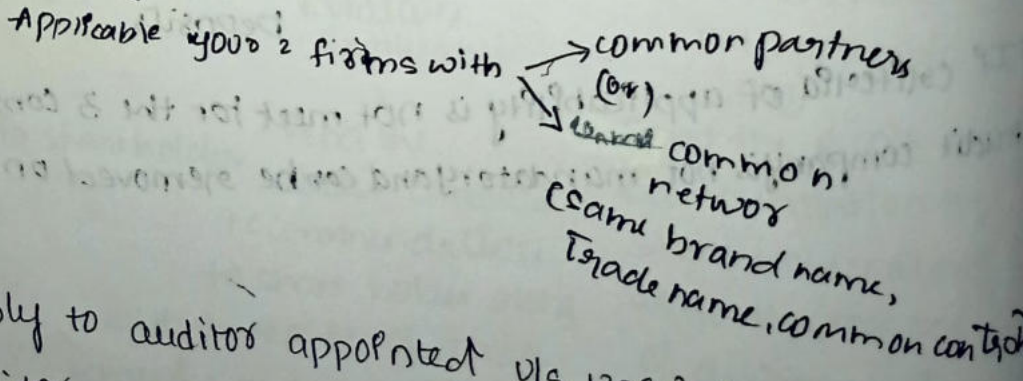 Applicable firms with → common partners
(or)
common
networ
(same brand name,
Trade name, common control
ly to auditor appointed u/s